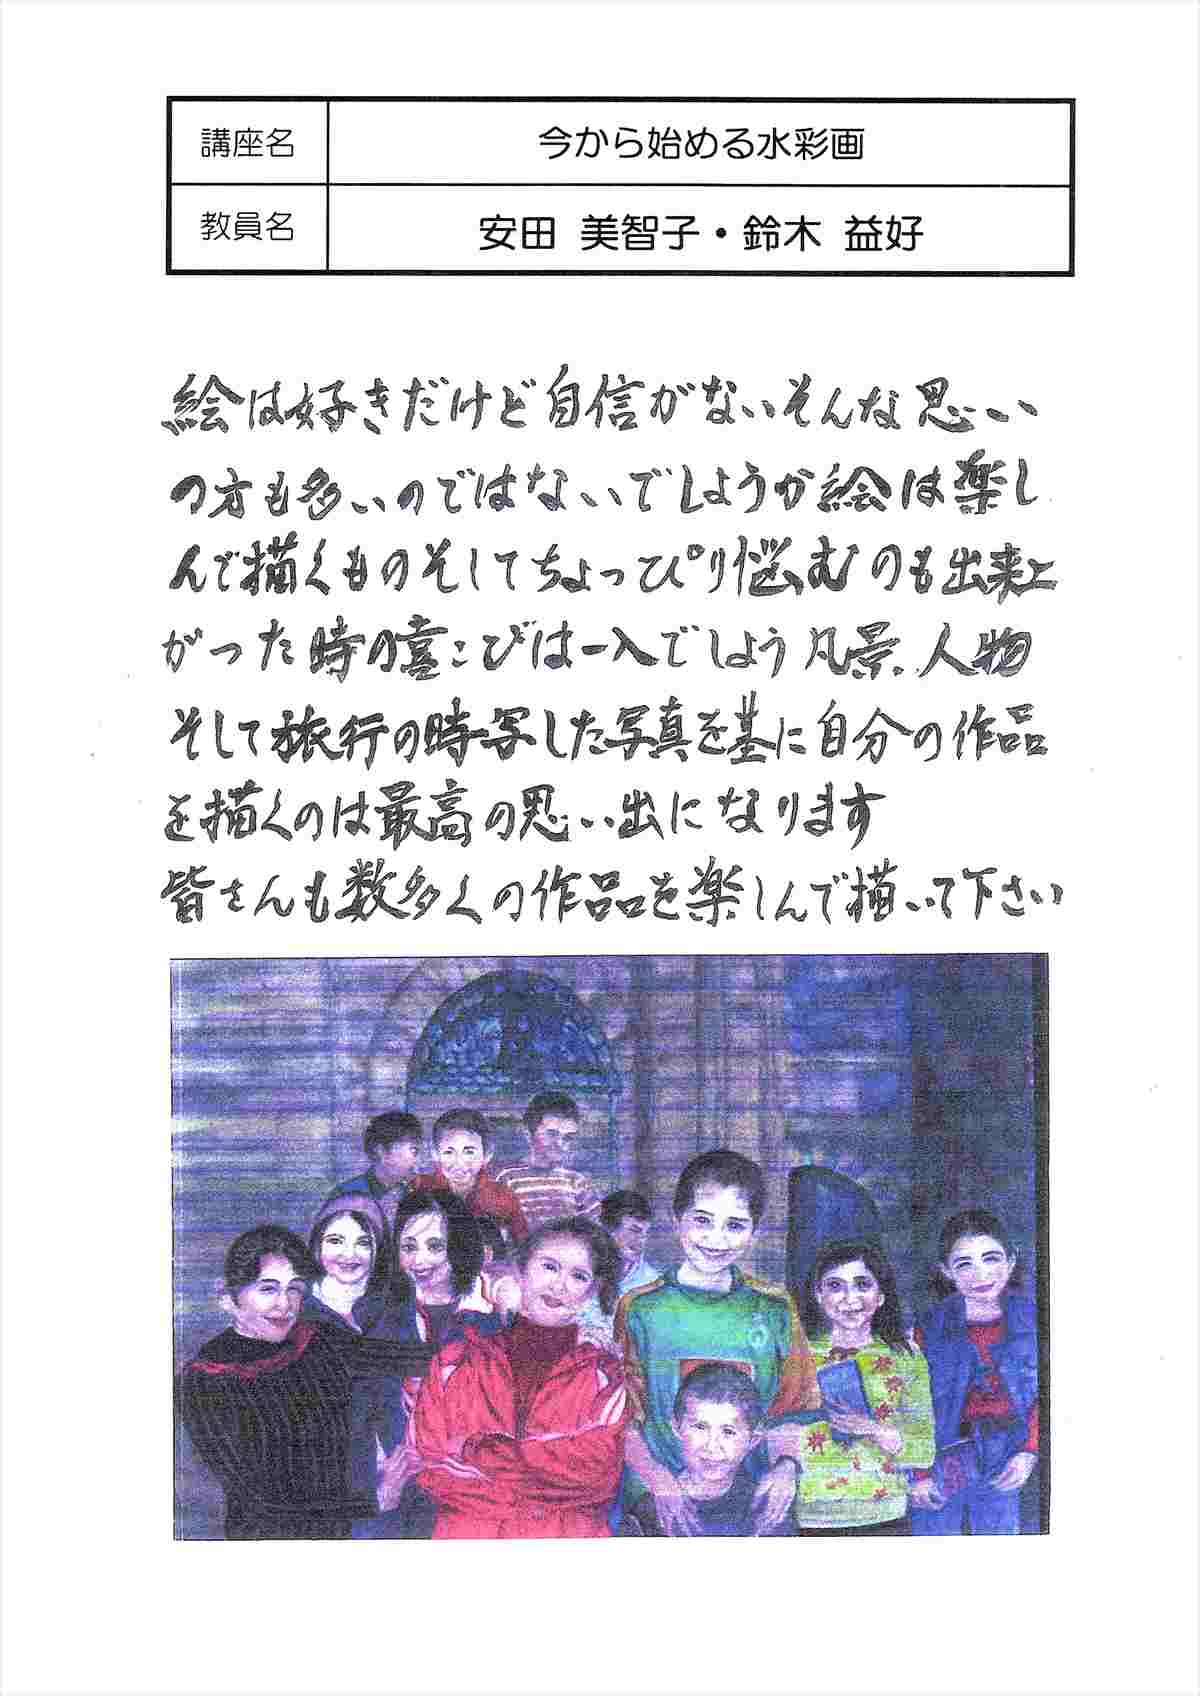 講座名 今から始める水彩画
教員名 安田 美智子・鈴木 益好
絵は好きだけど自信がないそんな思い
の方も多いのではないでしょうか絵は楽し
んで描くものそしてちょっぴり悩むのも出来上
がった時の喜こびは一入でしょう風景、人物
そして旅行の時写した写真を基に自分の作品
を描くのは最高の思い出になります
皆さんも数多くの作品を楽しんで描いて下さい